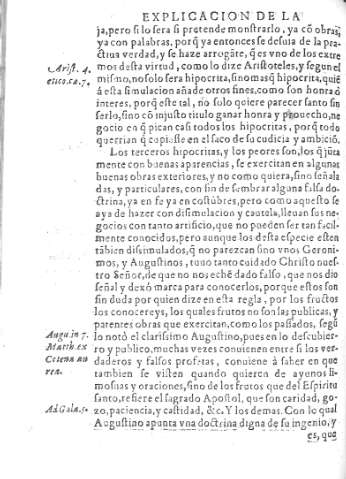 EXPLICACION DE LA
ja, pero si lo sera si pretende monstrarlo, ya cō obras,
ya con palabras, porq̃ ya entonces se desuia de la pra-
ctica verdad, y se haze arrogāte, q̃ es vno de los extre
Arist. 4.
mos desta virtud, como lo dize Aristoteles, y segun el
etico. ca. 7.
mismo, no solo sera hipocrita, sino masq̃ hipocrita, quiē
á esta simulacion añade otros fines, como son honra ó
interes, porq̃ este tal, no solo quiere parecer santo sin
serlo, sino cō injusto titulo ganar honra y prouecho, ne
gocio en q̃ pican casi todos los hipocritas, porq̃ todo
querrian q̃ cupiesse en el saco de su cudicia y ambiciō,
Los terceros hipocritas, y los peores son, los q̃ jūta
mente con buenas aparencias, se exercitan en algunas
buenas obras exteriores, y no como quiera, sino señala
das, y particulares, con fin de sembrar alguna falsa do-
ctrina, ya en fe ya en costūbres, pero como aquesto se
aya de hazer con dissimulacion y cautela, lleuan sus ne-
gocios con tanto artificio, que no pueden ser tan facil-
mente conocidos, pero aunque los desta especie esten
tābien dissimulados, q̃ no parezcan sino vnos Geroni-
mos, y Augustinos, tuuo tanto cuidado Christo nues-
tro Señor, de que no nos eché dado falso, que nos dio
señal y dexó marca para conocerlos, porque estos son
sin duda por quien dize en esta regla, por los fructos
los conocereys, los quales frutos no son las publicas, y
parentes obras que exercitan, como los passados, segū
Augu. in 7.
lo notò el clarissimo Augustino, pues en lo descubier-
Matth. ex
to y publico, muchas vezes conuienen entre si los ver-
daderos y falsos profetas, conuiene á saber en que
tambien se visten quando quieren de ayunos li-
mosnas y oraciones, sino de los frutos que del Espiritu
Ad Gala. 5.
santo, refiere el sagrado Apostol, que son caridad, go-
zo, paciencia, y castidad, &c. Y los demas. Con lo qual
Augustino apunta vna doctrina digna de su ingenio, y
es, que